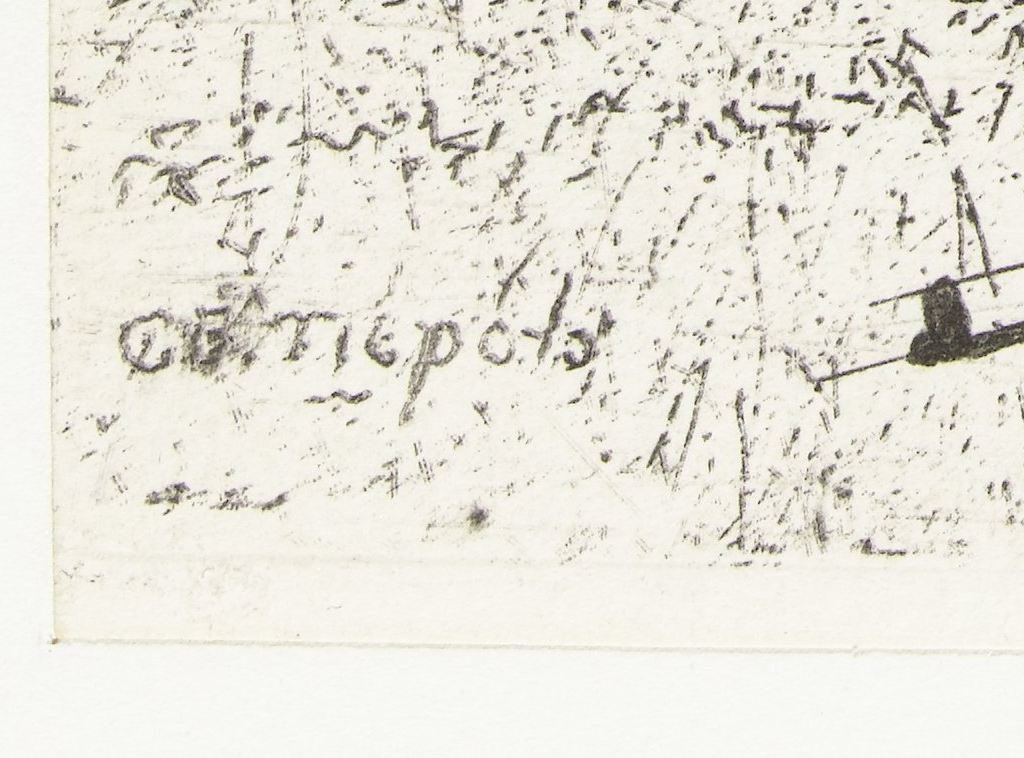 GB. Tiepolo